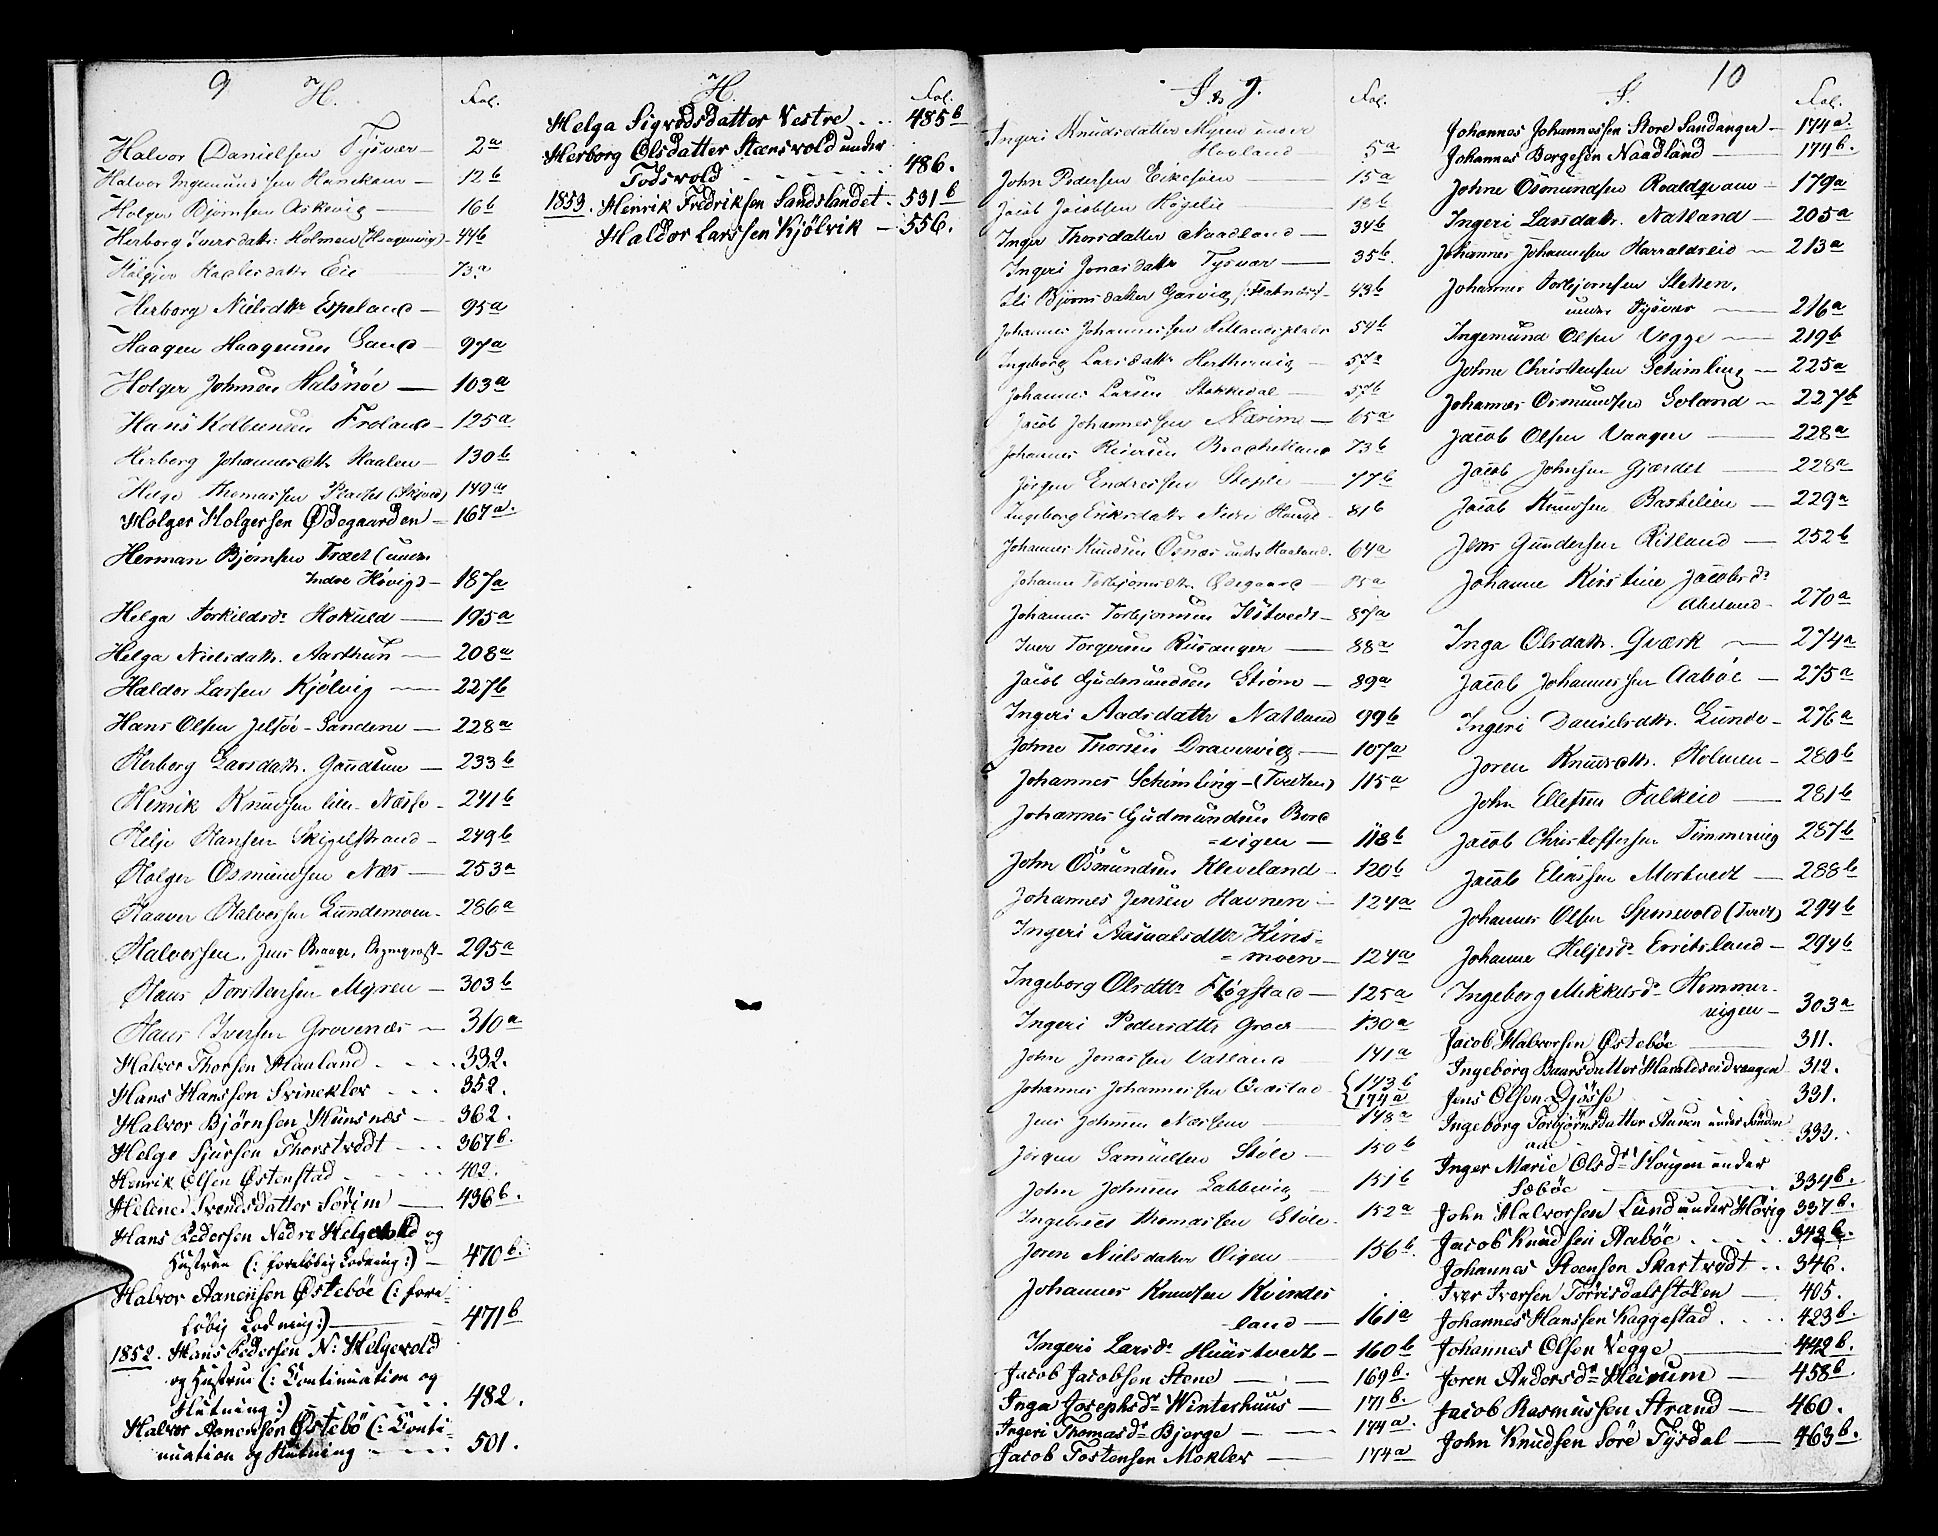 9 H. Fol.
Halvor Danielsen Tysvær — 2a
Halvor Ingemundsen — 12b
Holger Bjørnsen Askevig — 16b
Herborg Iversdatr: Holmen (Haapevig) — 44b
73a
Herborg Nielsdttr Espeland — 95a
Haagen Haagensen Sand — 97a
Holger Johnsen Halsnöe — 103a
Hans Kolbensen Froland — 125a
Herborg Johannesdtr Haalen — 130b
Helge Thomassen Pladts — 149a
Holger Holgersen Ødegaarden — 167a.
Herman Bjørnsen Træet (under
Indre Hövigs — 187a
Helga Torkildsdr Hokuld — 195a
Helga Nielsdatr. Aarthun — 208a
Haldor Larsen Kjölvig — 227b
Hans Olsen Jelsöe-Sandene — 228a
Herborg Larsdatr. — 233b
Henrik Knudsen lille Næsse — 241b
Helje Hansen — 249b
Holger Osmundsen Næs — 253a
Haaver Halvorsen Lundemoen — 286a
Halvorsen, Jens Braage — 295a
Hans Torstensen Myren — 303b
Hans Iversen Grovenæs — 310a
Halvor Thorsen Hauland . . . . 332.
Hans Hanssen Svinekler . . . 352.
Halvor Bjørnsen Hunsnæs — 362.
Helge Sjursen Thorstvedt . . . 367b.
Henrik Olsen Østenstad . . . . 402.
Helene Svendsdatter Sörim — 436b.
Hans Pedersen Nedre Helgevold og
Hustrue (: foreløbig Lodning :) — 470b.
Halvor Aanensen Østebøe (: fore-
løbig Lodning :) — 471b
1852. Hans Pedersen N: Helgevold
og Hustrue (: Continuation og
Slutning :) . . . . 482.
Halvor Aanensen Østebö (: Conti-
nuation og Slutning . . . . 501.
H. Fol.
Helga Sigvodsdatter Vestre . . . 485b
Herborg Olsdatter Stænsvold under
Todsvold . . . . . . 486.
1853. Henrik Fredriksen Sandslandet . 531b
Haldor Larssen Kjölvik — 556.
I & J. Fol.
Ingeri Knudsdatter Myren under
Hovland — 5a
John Pedersen Eikesöen — 15a
Jacob Jacobsen — 18b
Inger Thorsdatter Naadland — 34b
Ingeri Jonasdattr Tysvær — 35b
Eli Bjørnsdatter Garvig — 43b
Johannes Johannessen — 54b
Ingeborg Larsdattr Herthervig — 57a
Johannes Larsen Stokkedal — 57b
Jacob Johannessen Nærim — 65a
Johannes — 73b
Jörgen Endresen Steple — 77b
Ingeborg Eriksdattr Nedre Hauge — 81b
Johannes Knudsen Osnæs under Haaland. 64a
Johanne Torbjörnsdtr. Ødegaard — 85a
Johannes Torbjørnsen — 87a
Iver Torgersen — 88a
Jacob Gudmundsen Ström — 89a
Ingeri Aadsdattr Natland 99b
Johne Thorsen Dravevig — 107a
Johannes Schimling — (Tvedten) 115a
Johannes Gudmundsen Bore
=vigen — 118b
John Osmundsen Kleveland — 120b
Johannes Jensen Havnen — 124a
Ingeri Aasualsdttr Hins=
=moen — 124a
Ingeborg Olsdttr Fløgstad — 125a
Ingeri Pedersdttr Groe — 130a
John Jonassen Vatland — 141a
Johannes Johannessen — { 143b
174a
Jens Johnsen — 148a
Jörgen Samuelsen Støle — 150b
John Johnsen Labbevig — 151b
Thomassen Støle — 152a
Joren Nielsdatter Vigen — 156b
Johannes Knudsen Kvindes
land — 161a
Ingeri Larsdr Huustvedt — 160b
Jacob Jacobsen Stene — 169b.
Inga Josephsdr Winterhuus — 171b.
Ingeri Thomasdr Bjerge — 174a.
Jacob Tostensen Mokler — 174a
I. 10 Fol.
Johannes Johannessen Store Sandanger — 174a.
Johannes Borgesen Naadland — 174b.
Johne Osmundsen Roaldqvam — 179a
Ingeri Larsdatr. Natland — 205a
Johannes Johannesen Harraldseid — 213a
Johannes Torbjørnsen Sletten,
under Tysvær — 216a
Ingemund Olsen Vegge — 219b
Johne Christensen Schimling — 225a
Johannes Osmundsen Soland — 227b
Jacob Olsen Vaagen — 228a
Jacob Johnsen Gjærdet — 228a
Jacob Knudsen Bastelien — 229a
Jens Gundersen Ritland — 252b
Johanne Kirstine Jacobsdr
Abeland — 270a
Inga Olsdatr. Qværk — 274a
Jacob Johannessen Aaböe — 275a
Ingeri Danielsdtr. Lunde — 276a
Joren Knudsdtr. Holmen — 280b
John Ellefsen Falkeid — 281b
Jacob Christoffersen Timmervig 287b
Jacob Eliassen Mortvedt — 288b
Johannes Olsen Sponevold (Tvedt) 294b
Johanne Heljesdr Erritsland — 294b
Ingeborg Mikkelsdr Hemmer-
vigen — 303a
Jacob Halvorsen Østebøe — 311.
Ingeborg Baarsdatter Haraldseidvaagen 312.
Jens Olsen Djösse . . . 331.
Ingeborg Torbjørnsdatter Aanen under Sunden
333.
Inger Marie Olsdr Hougen under
Sæböe — 334b.
John Halvorsen Lund under Hövig 337b.
Jacob Knudsen Aaböe . . . . 342b.
Johannes Steensen Skartvedt . . 346.
Iver Iversen Törrisdalsstölen — 405.
Johannes Hanssen Kaggestad . . . 423b.
Johannes Olsen Vegge — 442b.
Joren Andersdr Heimum — 458b
Jacob Rasmussen Strand — 460.
John Knudsen Söre Tysdal — 463b.